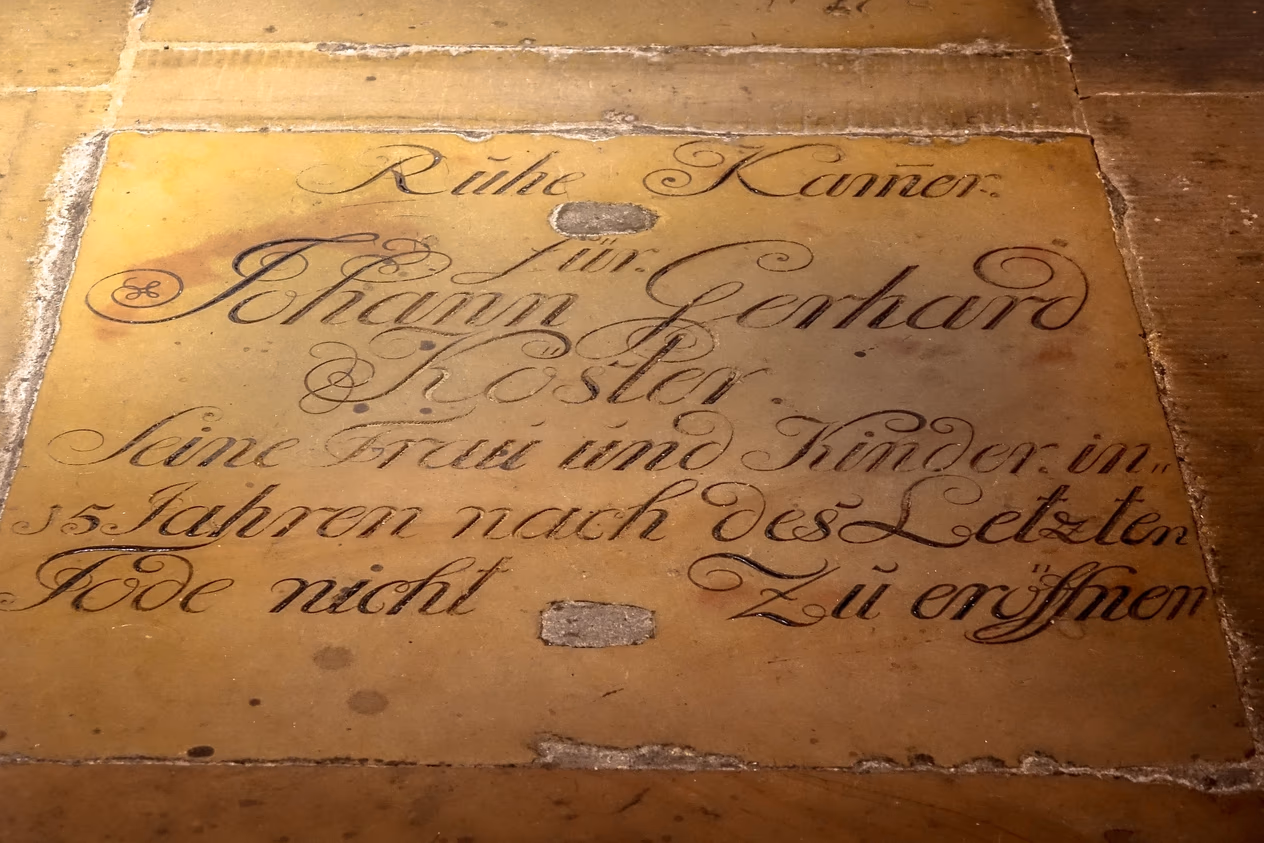 Rūhe Kam̄er.
für.
Johann Gerhard
Köster.
Seine Fraū ūnd Kinder. in„
15 Jahren nach des Letzten
Tode nicht Zū eröffnen